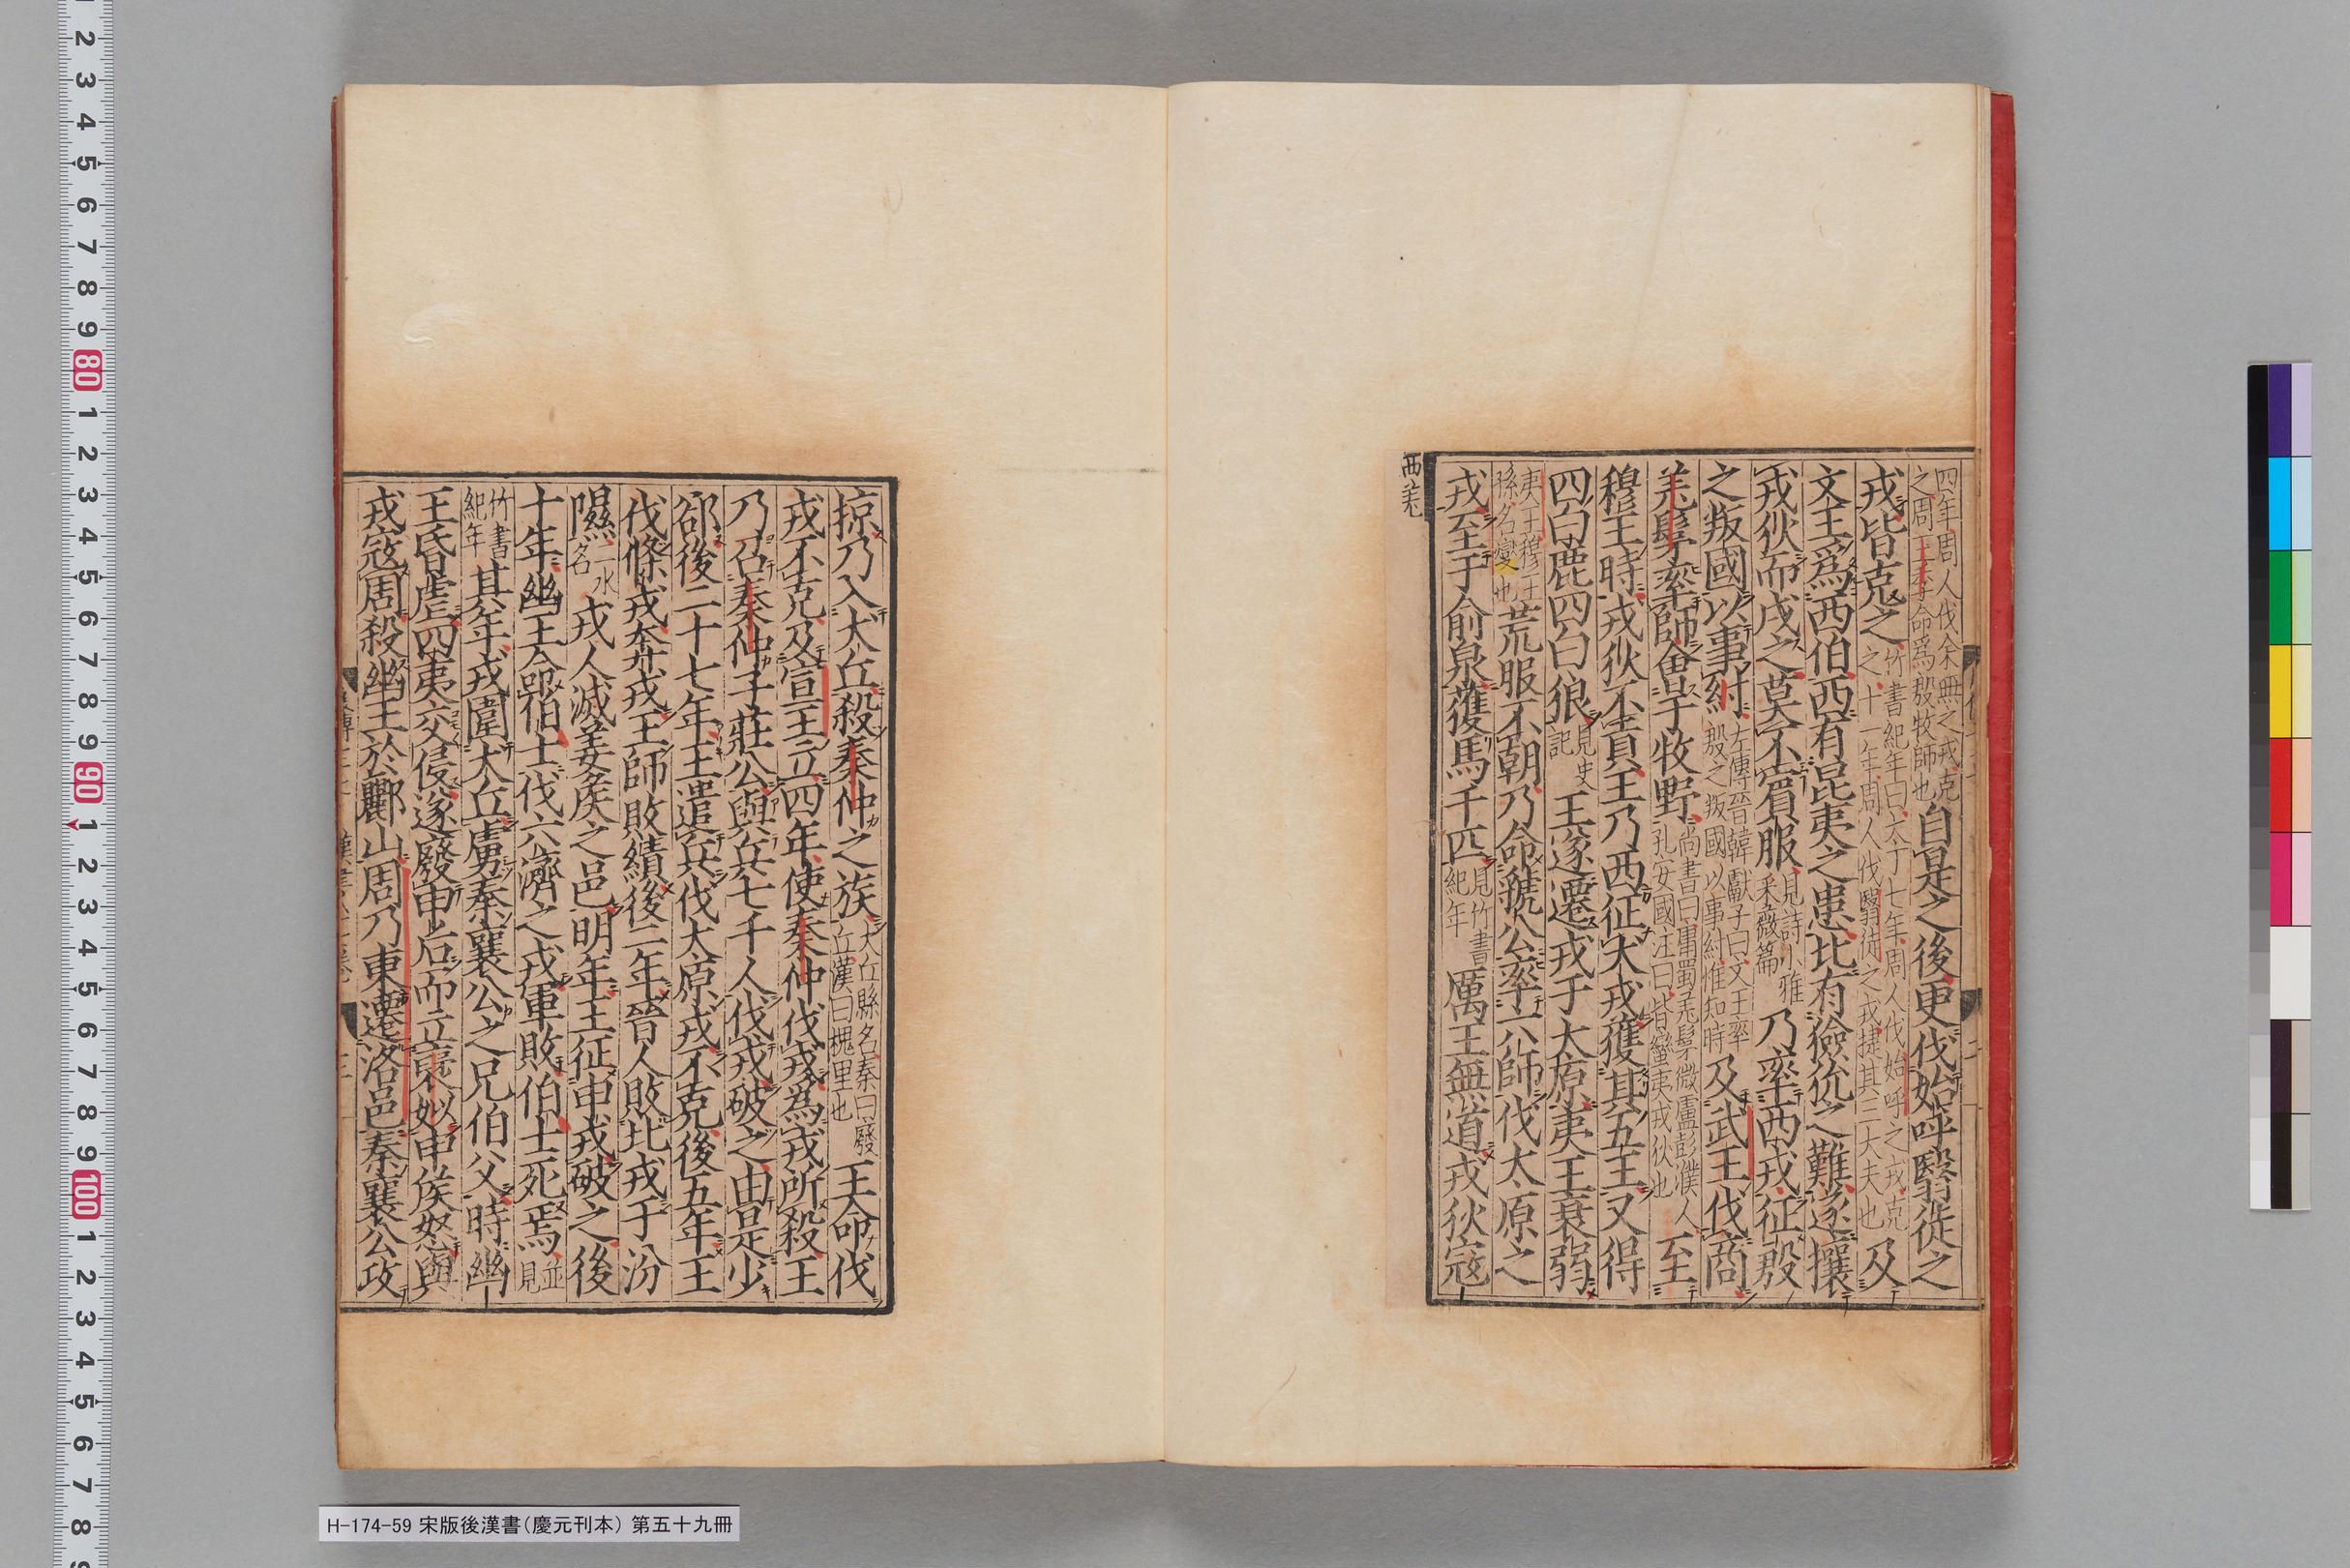 四年周人伐余無之戎克
之周王季命爲殷牧師也
自是之後更伐始呼翳徒之
戎皆克之
竹書紀年曰太丁七年周人伐始呼之戎克
之十一年周人伐翳徒之戎捷其三大夫也
及
文王爲西伯西有昆夷之患北有獫狁之難遂攘
戎狄而戍之莫不賓服
見詩小雅
采薇篇
乃率西戎征殷
之叛國以事紂
左傳晉韓獻子曰文王率
殷之叛國以事紂惟知時
及武王伐商
羌髳率師會于牧野
尚書曰庸蜀羌髳微盧彭濮人
孔安國注曰皆蠻夷戎狄也
至
穆王時戎狄不貢王乃西征犬戎獲其五王又得
四白鹿四白狼
見史
記
王遂遷戎于太原夷王衰弱
夷王穆王
孫名燮也
荒服不朝乃命虢公率六師伐太原之
戎至于俞泉獲馬千匹
見竹書
紀年
厲王無道戎狄寇
西羌
掠乃入犬丘殺秦仲之族
犬丘縣名秦曰廢
丘漢曰槐里也
王命伐
戎不克及宣王立四年使秦仲伐戎爲戎所殺王
乃召秦仲子莊公與兵七千人伐戎破之由是少
郤後二十七年王遣兵伐太原戎不克後五年王
伐條戎奔戎王師敗績後二年晉人敗北戎于汾
隰
二水
名
戎人滅姜侯之邑明年王征申戎破之後
十年幽王命伯士伐六濟之戎軍敗伯士死焉
並見
竹書
紀年
其年戎圍犬丘虜秦襄公之兄伯父時幽
王昏虐四夷交侵遂廢申后而立襃姒申侯怒與
戎寇周殺幽王於酈山周乃東遷洛邑秦襄公攻
H-174-59 宋版後漢書(慶元刊本) 第五十九冊